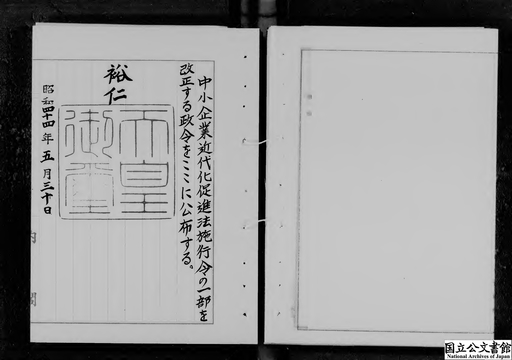 中小企業近代化促進法施行令の一部を
改正する政令をここに公布する。
裕仁
天皇
御璽
昭和四十四年五月三十日
内閣
国立公文書館
National Archives of Japan